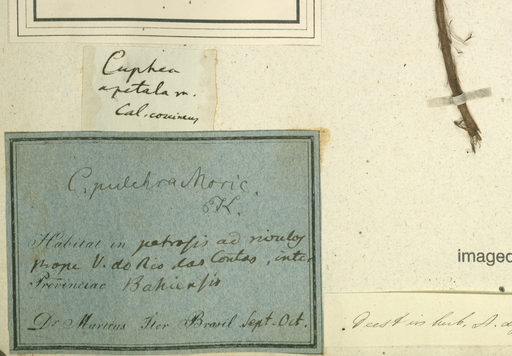 Cuphea
apetala m.
Cal.
C. pulchra Moric.
K.
Habitat in petrosis ad rivulos
prope V. do Rio das Contas, inter
Provinciae Bahiensis
Dr Martius Iter Brasil Sept. Oct.
imaged
deest in herb.